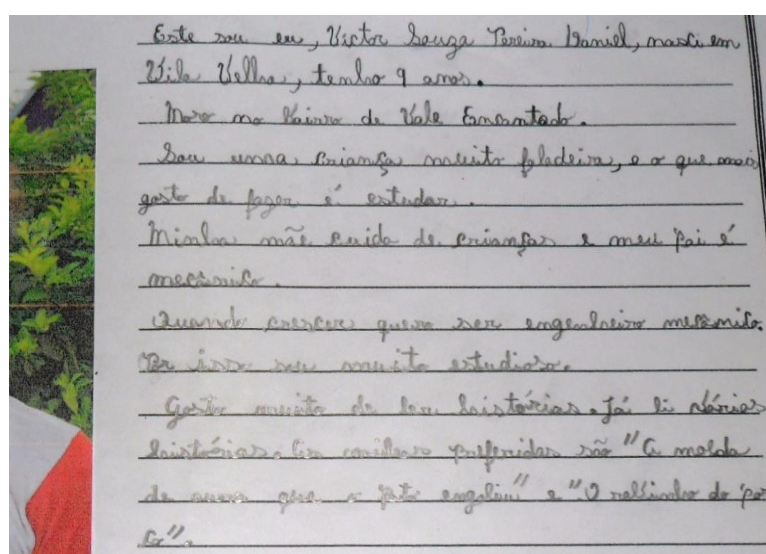 Este sou eu, Victor Souza Pereira Daniel, nasci em
Vila Velha, tenho 9 anos.
Moro no Bairro de Vale Encantado.
Sou uma criança muito faladeira, e o que mais
gosto de fazer é estudar.
Minha mãe cuida de crianças e meu pai é
mecânico.
Quando crescer quero ser engenheiro mecânico.
Por isso sou muito estudioso.
Gosto muito de ler histórias. Já li várias
histórias. As minhas preferidas são "A moeda
de ouro que o pato engoliu" e "O rabinho do por
co".